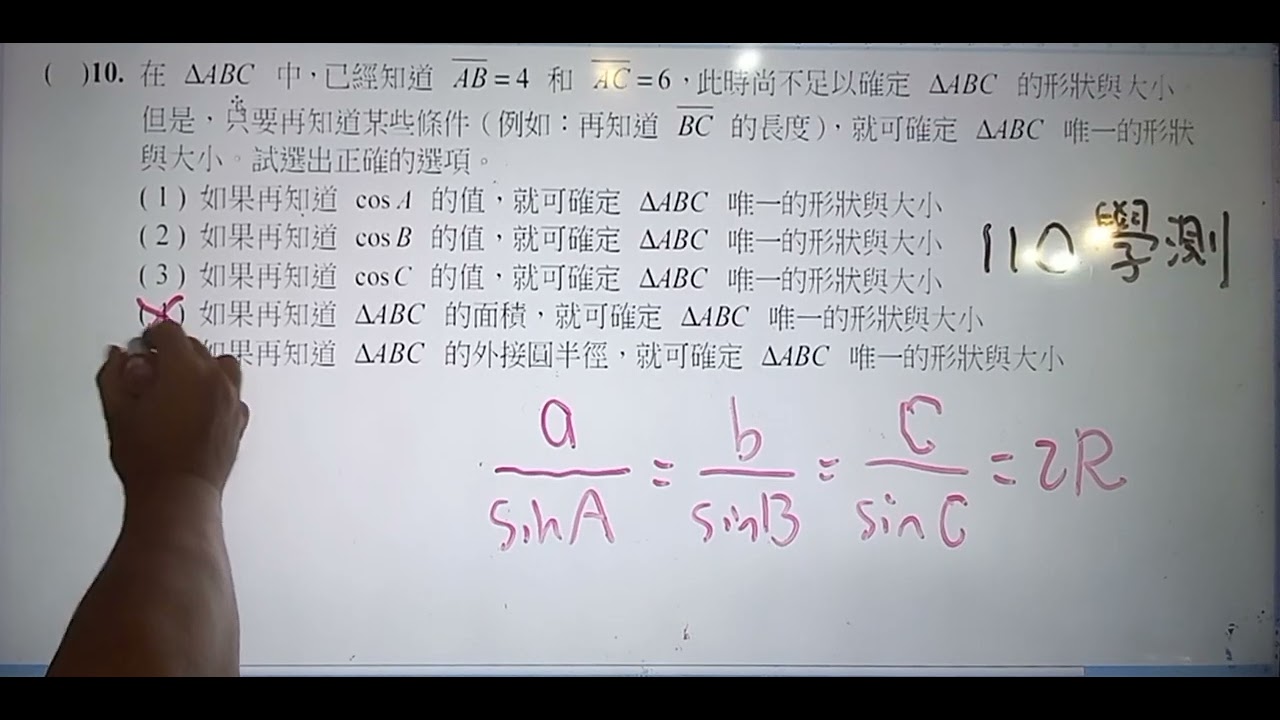 ( )10. 在 ΔABC 中,已經知道 AB = 4 和 AC = 6,此時尚不足以確定 ΔABC 的形狀與大小
但是,只要再知道某些條件(例如:再知道 BC 的長度),就可確定 ΔABC 唯一的形狀
與大小。試選出正確的選項。
(1) 如果再知道 cos A 的值,就可確定 ΔABC 唯一的形狀與大小
(2) 如果再知道 cos B 的值,就可確定 ΔABC 唯一的形狀與大小
(3) 如果再知道 cos C 的值,就可確定 ΔABC 唯一的形狀與大小
(4) 如果再知道 ΔABC 的面積,就可確定 ΔABC 唯一的形狀與大小
如果再知道 ΔABC 的外接圓半徑,就可確定 ΔABC 唯一的形狀與大小
110 學測
a/sinA = b/sinB = C/sinC = 2R